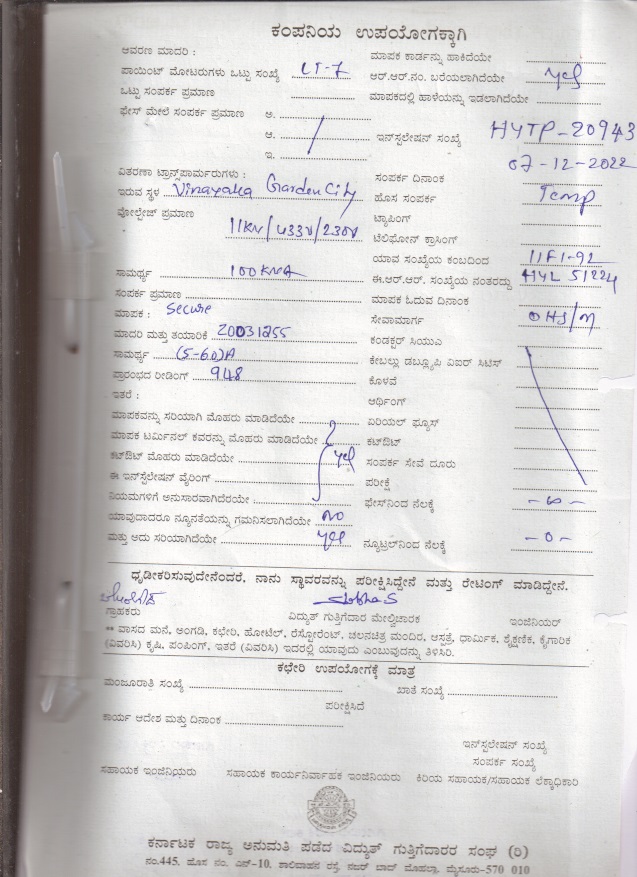 ಕಂಪನಿಯ ಉಪಯೋಗಕ್ಕಾಗಿ
ಆವರಣ ಮಾದರಿ :
ಮಾಪಕ ಕಾರ್ಡನ್ನು ಹಾಕಿದೆಯೇ
ಪಾಯಿಂಟ್ ಮೋಟರುಗಳು ಒಟ್ಟು ಸಂಖ್ಯೆ LT-7
ಆರ್.ಆರ್.ನಂ. ಬರೆಯಲಾಗಿದೆಯೇ Yes
ಒಟ್ಟು ಸಂಪರ್ಕ ಪ್ರಮಾಣ
ಮಾಪಕದಲ್ಲಿ ಹಾಳೆಯನ್ನು ಇಡಲಾಗಿದೆಯೇ
ಫೇಸ್ ಮೇಲೆ ಸಂಪರ್ಕ ಪ್ರಮಾಣ ಅ.
ಆ.
ಇ.
ಇನ್‌ಸ್ಟಲೇಷನ್ ಸಂಖ್ಯೆ HYTP-20943
ವಿತರಣಾ ಟ್ರಾನ್ಸ್‌ಪಾರ್ಮರುಗಳು :
ಸಂಪರ್ಕ ದಿನಾಂಕ 07-12-2022
ಇರುವ ಸ್ಥಳ Vinayaka Garden City
ಹೊಸ ಸಂಪರ್ಕ Temp
ವೋಲ್ಟೇಜ್ ಪ್ರಮಾಣ 11KV/433V/230V
ಟ್ಯಾಪಿಂಗ್
ಟೆಲಿಫೋನ್ ಕ್ರಾಸಿಂಗ್
ಯಾವ ಸಂಖ್ಯೆಯ ಕಂಬದಿಂದ 11F1-92
ಸಾಮರ್ಥ್ಯ 100KVA
ಈ.ಆರ್.ಆರ್. ಸಂಖ್ಯೆಯ ನಂತರದ್ದು HYL 51224
ಸಂಪರ್ಕ ಪ್ರಮಾಣ
ಮಾಪಕ ಓದುವ ದಿನಾಂಕ
ಮಾಪಕ : Secure
ಸೇವಾಮಾರ್ಗ OHS/M
ಮಾದರಿ ಮತ್ತು ತಯಾರಿಕೆ 20031255
ಕಂಡಕ್ಟರ್ ಸಿಯುಎ
ಸಾಮರ್ಥ್ಯ (5-60)A
ಕೇಬಲ್ಲು ಡಬ್ಲ್ಯೂಪಿ ಏಐರ್ ಸಿಟಿಸ್
ಪ್ರಾರಂಭದ ರೀಡಿಂಗ್ 948
ಕೊಳವೆ
ಇತರೆ :
ಆರ್ಥಿಂಗ್
ಮಾಪಕವನ್ನು ಸರಿಯಾಗಿ ಮೊಹರು ಮಾಡಿದೆಯೇ
ಏರಿಯಲ್ ಫ್ಯೂಸ್
ಮಾಪಕ ಟರ್ಮಿನಲ್ ಕವರನ್ನು ಮೊಹರು ಮಾಡಿದೆಯೇ
ಕಟ್‌ಔಟ್
ಕಟ್‌ಔಟ್ ಮೊಹರು ಮಾಡಿದೆಯೇ Yes
ಸಂಪರ್ಕ ಸೇವೆ ದೂರು
ಈ ಇನ್‌ಸ್ಟಲೇಷನ್ ವೈರಿಂಗ್
ಪರೀಕ್ಷೆ
ನಿಯಮಗಳಿಗೆ ಅನುಸಾರವಾಗಿದೆರಯೇ
ಫೇಸ್‌ನಿಂದ ನೆಲಕ್ಕೆ - ∞ -
ಯಾವುದಾದರೂ ನ್ಯೂನತೆಯನ್ನು ಗ್ರಮನಿಸಲಾಗಿದೆಯೇ NO
ಮತ್ತು ಅದು ಸರಿಯಾಗಿದೆಯೇ Yes
ನ್ಯೂಟ್ರಲ್‌ನಿಂದ ನೆಲಕ್ಕೆ - 0 -
ಧೃಡೀಕರಿಸುವುದೇನೆಂದರೆ. ನಾನು ಸ್ಥಾವರವನ್ನು ಪರೀಕ್ಷಿಸಿದ್ದೇನೆ ಮತ್ತು ರೇಟಿಂಗ್ ಮಾಡಿದ್ದೇನೆ.
Shobha S
ಗ್ರಾಹಕರು ವಿದ್ಯುತ್ ಗುತ್ತಿಗೆದಾರ ಮೇಲ್ವಿಚಾರಕ ಇಂಜಿನಿಯರ್
** ವಾಸದ ಮನೆ, ಅಂಗಡಿ, ಕಛೇರಿ, ಹೋಟೆಲ್, ರೆಸ್ಟೋರೆಂಟ್, ಚಲನಚಿತ್ರ ಮಂದಿರ, ಆಸ್ಪತ್ರೆ, ಧಾರ್ಮಿಕ, ಶೈಕ್ಷಣಿಕ, ಕೈಗಾರಿಕ
(ವಿವರಿಸಿ) ಕೃಷಿ, ಪಂಪಿಂಗ್, ಇತರೆ (ವಿವರಿಸಿ) ಇದರಲ್ಲಿ ಯಾವುದು ಎಂಬುವುದನ್ನು ತಿಳಿಸಿರಿ.
ಕಛೇರಿ ಉಪಯೋಗಕ್ಕೆ ಮಾತ್ರ
ಮಂಜೂರಾತಿ ಸಂಖ್ಯೆ ಖಾತೆ ಸಂಖ್ಯೆ
ಪರೀಕ್ಷಿಸಿದೆ
ಕಾರ್ಯ ಆದೇಶ ಮತ್ತು ದಿನಾಂಕ
ಇನ್‌ಸ್ಟಲೇಷನ್ ಸಂಖ್ಯೆ
ಸಂಪರ್ಕ ಸಂಖ್ಯೆ
ಸಹಾಯಕ ಇಂಜಿನಿಯರು ಸಹಾಯಕ ಕಾರ್ಯನಿರ್ವಾಹಕ ಇಂಜಿನಿಯರು ಕಿರಿಯ ಸಹಾಯಕ/ಸಹಾಯಕ ಲೆಕ್ಕಾಧಿಕಾರಿ
ಕರ್ನಾಟಕ ರಾಜ್ಯ ಅನುಮತಿ ಪಡೆದ ವಿದ್ಯುತ್ ಗುತ್ತಿಗೆದಾರರ ಸಂಘ (ರಿ)
ನಂ.445. ಹೊಸ ನಂ. ಎನ್-10. ಶಾಲಿವಾಹನ ರಸ್ತೆ, ನಜರ್ ಬಾದ್ ಮೊಹಲ್ಲಾ, ಮೈಸೂರು-570 010